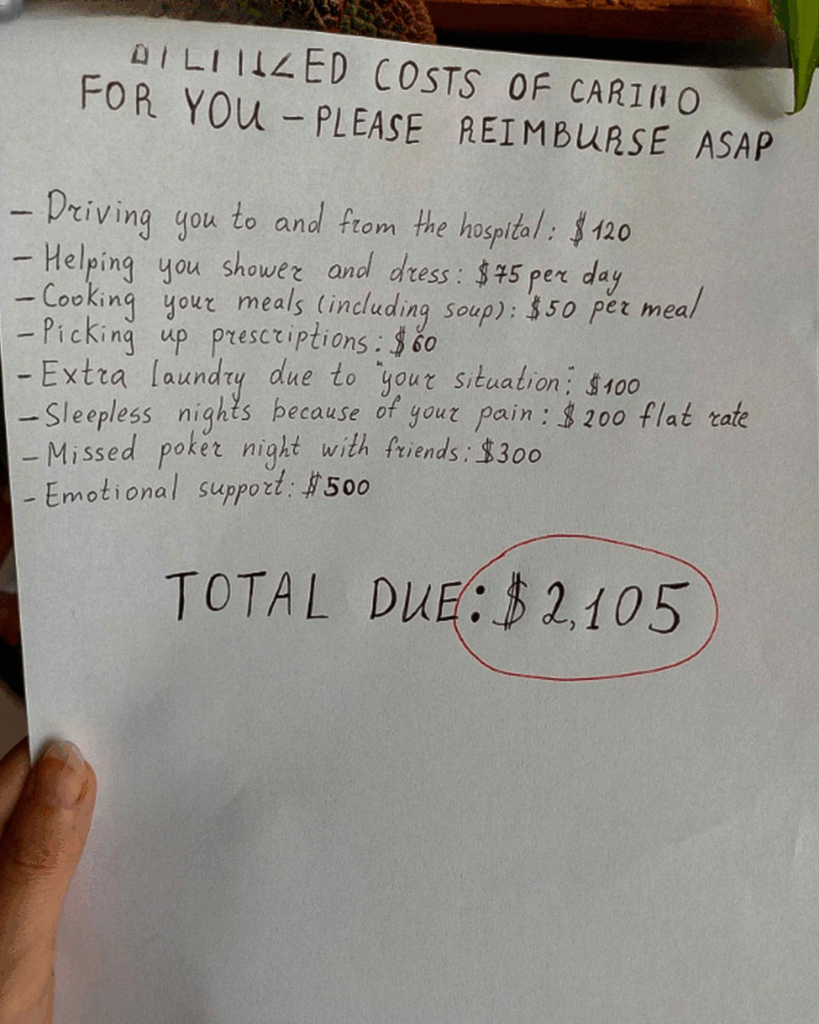 COSTS OF
FOR YOU – PLEASE REIMBURSE ASAP
– Driving you to and from the hospital: $120
– Helping you shower and dress: $75 per day
– Cooking your meals (including soup): $50 per meal
– Picking up prescriptions: $60
– Extra laundry due to "your situation": $100
– Sleepless nights because of your pain: $200 flat rate
– Missed poker night with friends: $300
– Emotional support: $500
TOTAL DUE: $2,105